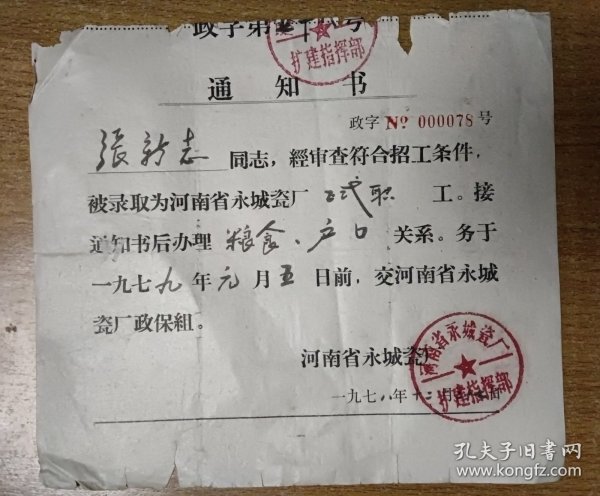 政字第 号
扩建指挥部
通知书
政字 № 000078 号
張新志 同志，經审查符合招工条件，
被录取为河南省永城瓷厂 正式职 工。接
通知书后办理 粮食、户口 关系。务于
一九七九年元月五日前，交河南省永城
瓷厂政保組。
河南省永城瓷厂
一九七八年十二月 日
河南省永城瓷厂
扩建指挥部
孔夫子旧书网
www.kongfz.com